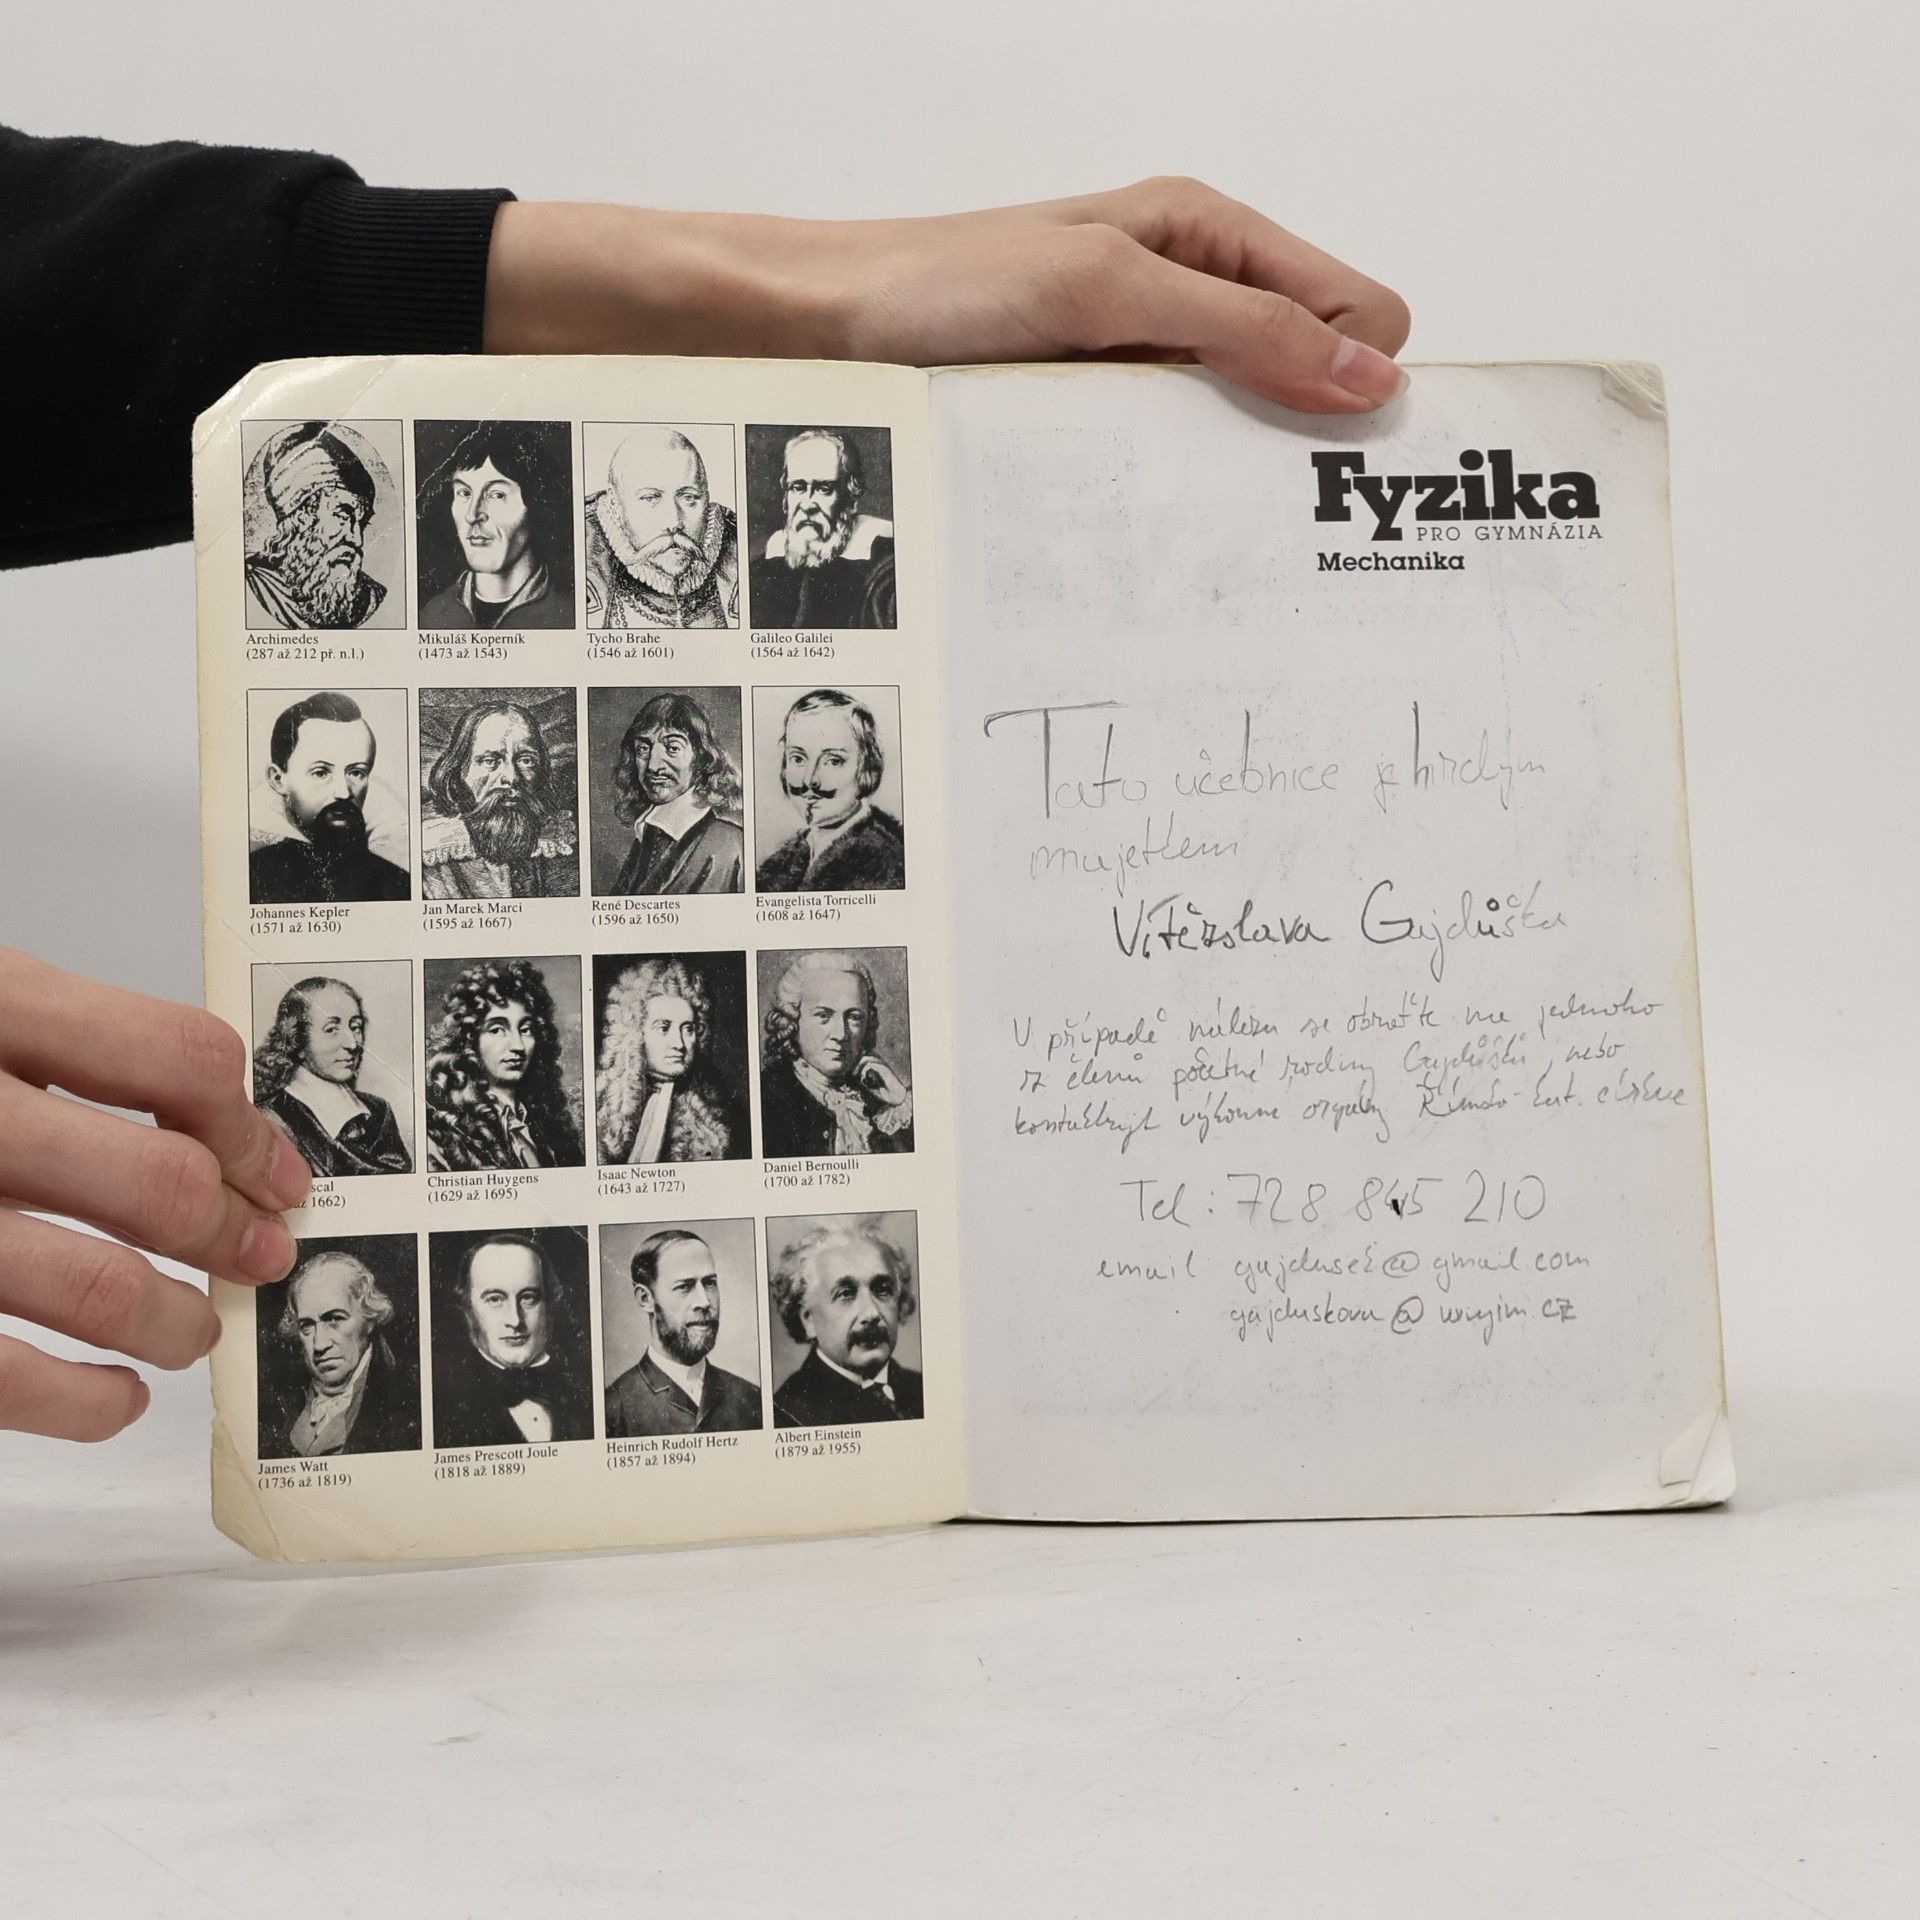 Archimedes
(287 až 212 př. n.l.)
Mikuláš Koperník
(1473 až 1543)
Tycho Brahe
(1546 až 1601)
Galileo Galilei
(1564 až 1642)
Johannes Kepler
(1571 až 1630)
Jan Marek Marci
(1595 až 1667)
René Descartes
(1596 až 1650)
Evangelista Torricelli
(1608 až 1647)
scal
až 1662)
Christian Huygens
(1629 až 1695)
Isaac Newton
(1643 až 1727)
Daniel Bernoulli
(1700 až 1782)
James Watt
(1736 až 1819)
James Prescott Joule
(1818 až 1889)
Heinrich Rudolf Hertz
(1857 až 1894)
Albert Einstein
(1879 až 1955)
Fyzika
PRO GYMNÁZIA
Mechanika
Tato učebnice je hrdým
majetkem
Vítězslava Gajdůška
V případě nálezu se obraťte na jednoho
z členů početné rodiny Gajdůšků, nebo
kontaktujt výkonné orgány Římsko-kat. církve
Tel: 728 845 210
email gajdusek@gmail.com
gajduskova@wujin.cz